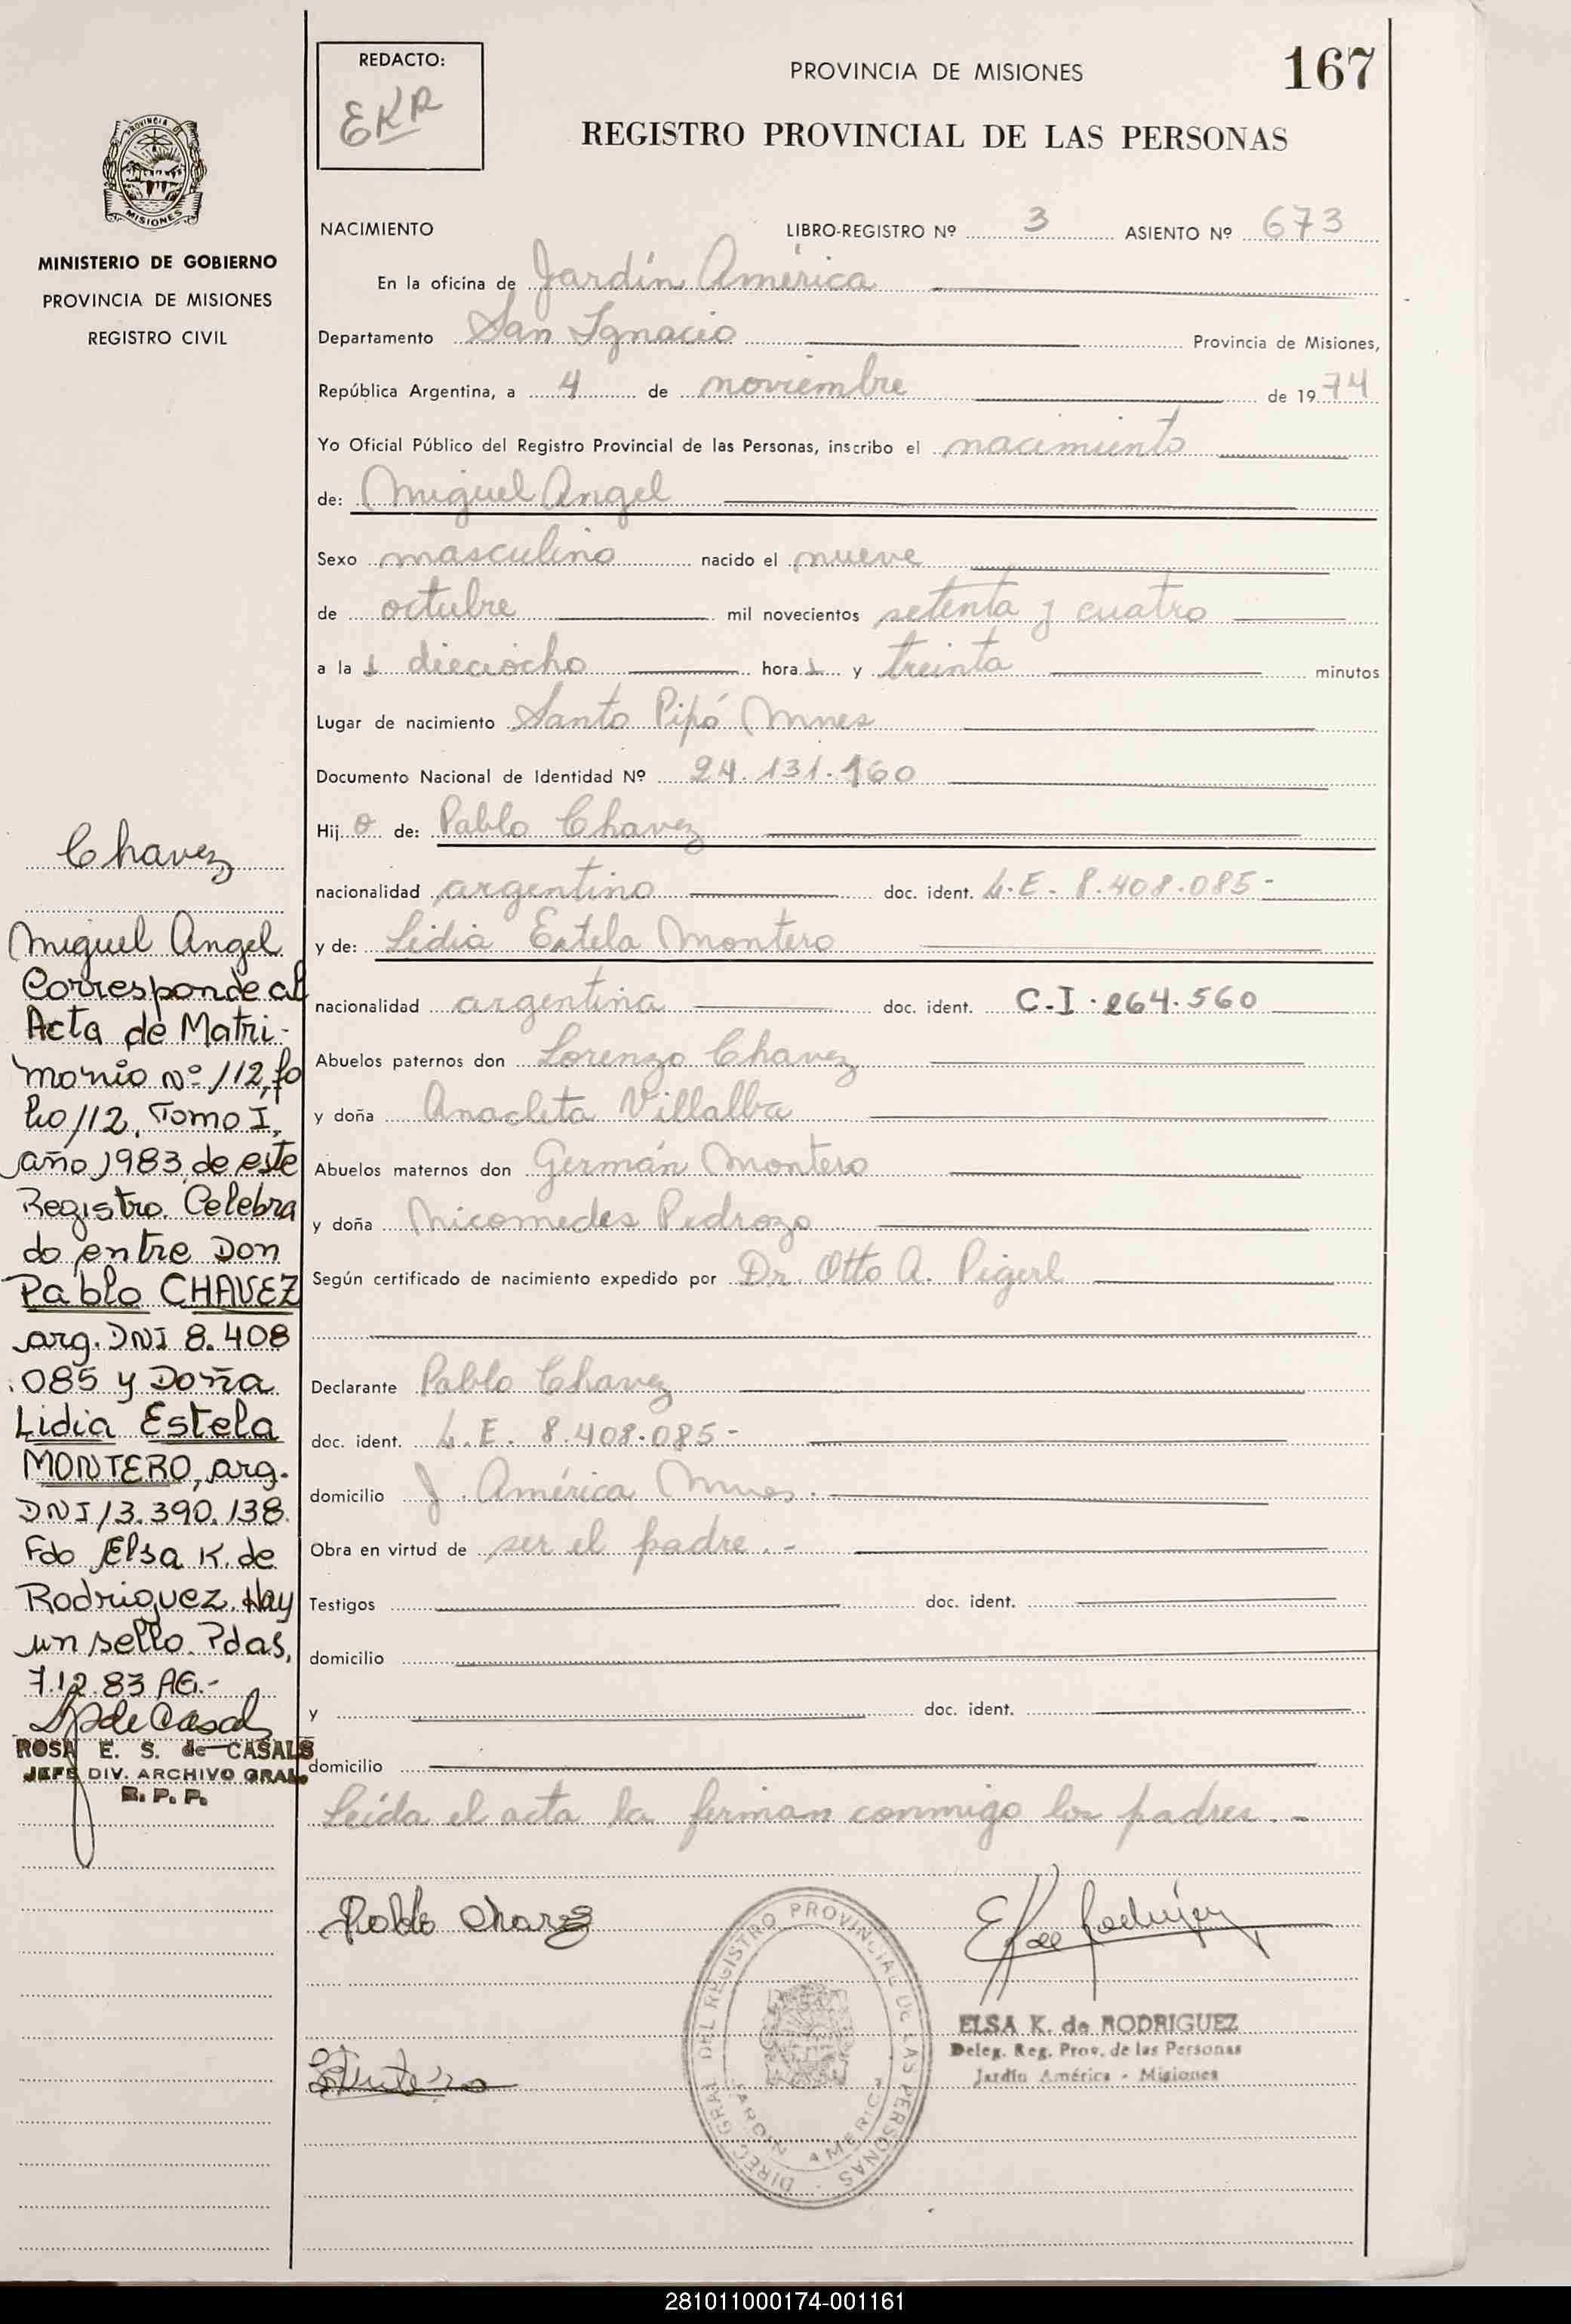 REDACTO:
EKR
PROVINCIA DE MISIONES
167
REGISTRO PROVINCIAL DE LAS PERSONAS
PROVINCIA DE
MISIONES
MINISTERIO DE GOBIERNO
PROVINCIA DE MISIONES
REGISTRO CIVIL
NACIMIENTO LIBRO-REGISTRO Nº 3 ASIENTO Nº 673
En la oficina de Jardín América
Departamento San Ignacio Provincia de Misiones,
República Argentina, a 4 de noviembre de 1974
Yo Oficial Público del Registro Provincial de las Personas, inscribo el nacimiento
de: Miguel Angel
Sexo masculino nacido el nueve
de octubre mil novecientos setenta y cuatro
a las dieciocho horas y treinta minutos
Lugar de nacimiento Santo Pipó Mnes
Documento Nacional de Identidad Nº 24.131.160
Hijo de: Pablo Chavez
nacionalidad argentino doc. ident. L.E. 8.408.085-
y de: Lidia Estela Montero
nacionalidad argentina doc. ident. C.I. 264.560
Abuelos paternos don Lorenzo Chavez
y doña Anacleta Villalba
Abuelos maternos don Germán Montero
y doña Nicomedes Pedrozo
Según certificado de nacimiento expedido por Dr. Otto A. Pigerl
Declarante Pablo Chavez
doc. ident. L.E. 8.408.085-
domicilio J. América Mnes.
Obra en virtud de ser el padre.-
Testigos doc. ident.
domicilio
y doc. ident.
domicilio
Leída el acta la firman conmigo los padres.-
Chavez
Miguel Angel
Corresponde al
Acta de Matri-
monio Nº 112, fo
lio 112, Tomo I,
año 1983, de este
Registro. Celebra
do entre Don
Pablo CHAVEZ
arg. DNI 8.408
.085 y Doña
Lidia Estela
MONTERO, arg.
DNI 13.390.138.
Fdo Elsa K. de
Rodriguez. Hay
un sello. Pdas,
7.12.83 AG.-
ROSA E. S. de CASALS
JEFE DIV. ARCHIVO GRAL.
R. P. P.
Pablo Chavez
EK de Rodriguez
ELSA K. de RODRIGUEZ
Deleg. Reg. Prov. de las Personas
Jardín América - Misiones
DIREC. GRAL. DEL REGISTRO PROVINCIAL DE LAS PERSONAS
JARDIN AMERICA
281011000174-001161